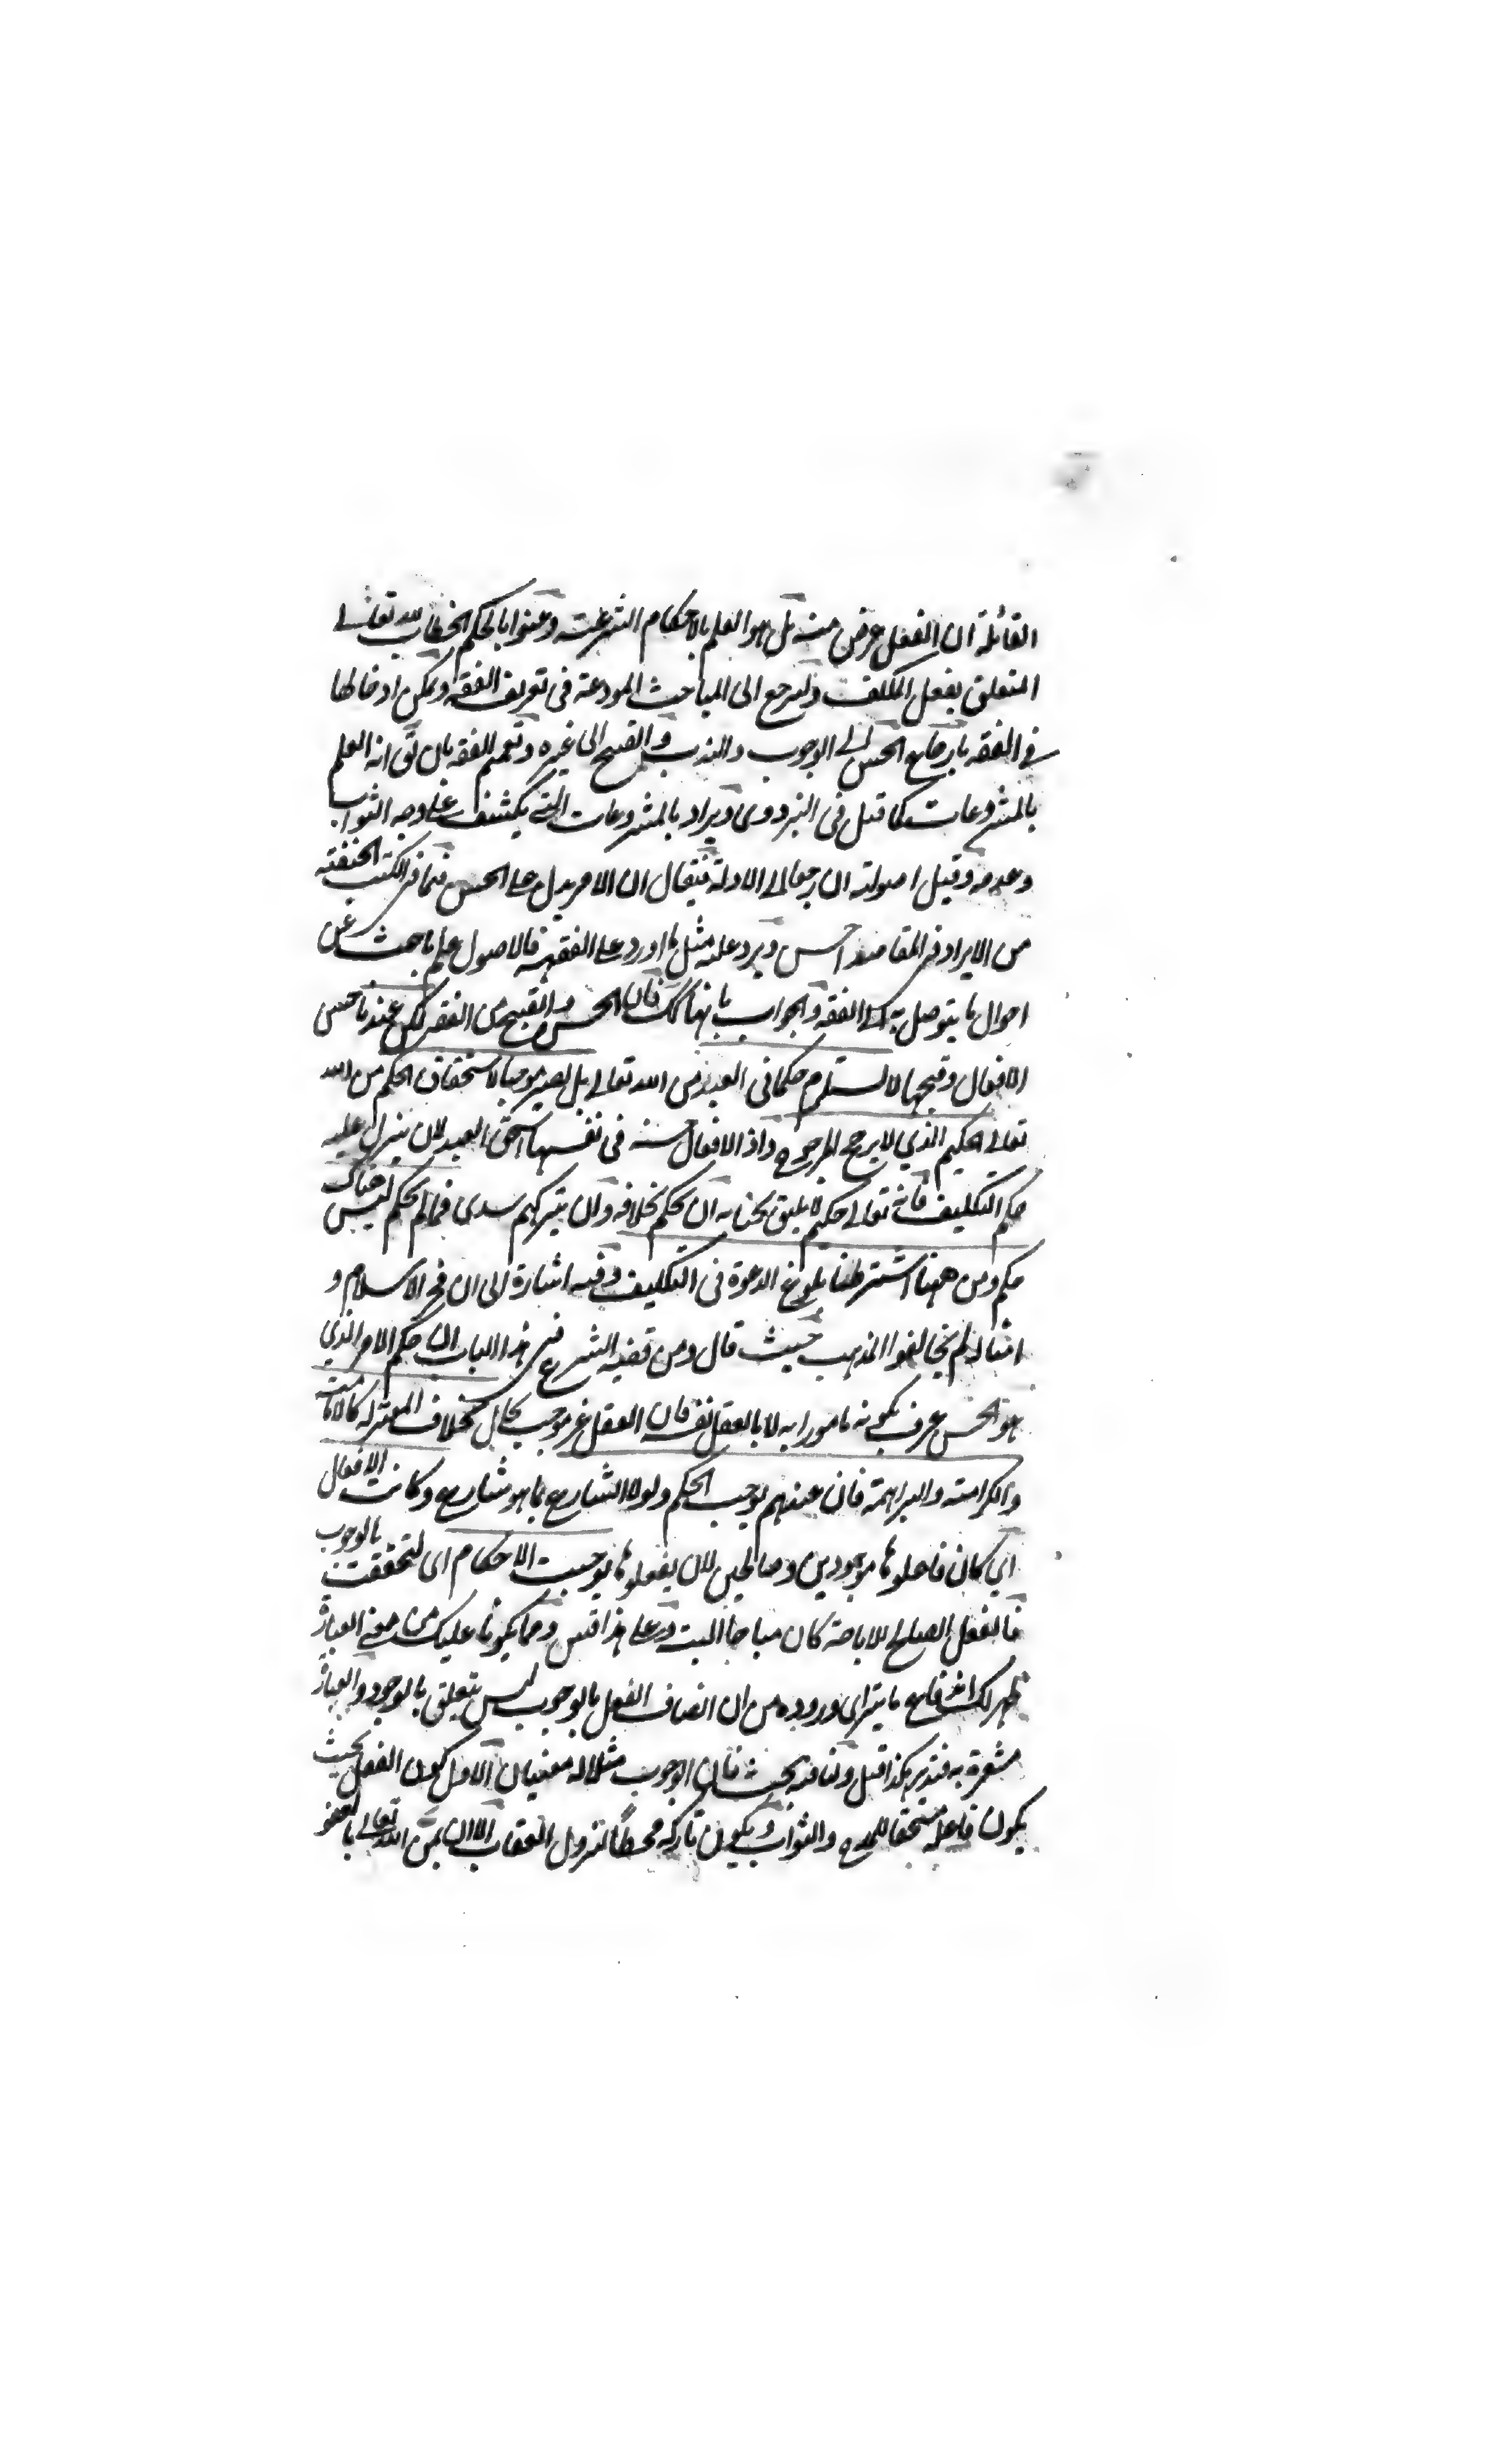 القائلة ان الفعل عرض منه بل هو العلم بالاحكام الشرعية وعنوا بالحكم الخطاب لله تعالى
المتعلق بفعل المكلف وليرجع الى المباحث المودعة فى تعريف الفقه ويمكن ادخالها
فى الفقه بارجاع الحسن الى الوجوب والندب والقبيح الى غيره وتعميم الفقه بان يق انه العلم
بالمشروعات كما قيل فى البزدوى ويراد بالمشروعات التى يكشف على وجه الثواب
وعدمه وقيل اصولية ان رجعا الى الادلة فيقال ان الامر يدل على الحسن فما فى الكتب الحنفية
من الايراد فى المقاصد احسن ويرد عليه مثل ما اورد على الفقهية فالاصول علم باحث عن
احوال ما يتوصل به الى الفقه والجواب بانها كك فان الحسن والقبيح من الفقه لكن عندنا حسن
الافعال وقبحها لا يستلزم حكما فى العبد من الله تعالى بل يصير موجبا لاستحقاق الحكم من الله
تعالى الحكيم الذي لا يرجح المرجوح واذ الافعال حسنة فى نفسها استحق العبد لان ينزل عليه
حكم التكليف فانه تعالى حكيم لا يليق بجنابه ان يحكم بخلافه وان يتركهم سدى فما لم يحكم ليس هناك
حكم ومن ههنا اشترطنا بلوغ الدعوة فى التكليف وفيه اشارة الى ان فخر الاسلام و
امثاله لم يخالفوا المذهب حيث قال ومن قضية الشرع فى هذا الباب ان حكم الامر الذي
هو الحسن عرف بكونه مامورا به لا بالعقل نفسه فان العقل غير موجب بحال بخلاف المعتزلة كالامامية
والكرامية والبراهمة فان عندهم يوجب الحكم ولولا الشارع بما هو شارع وكانت الافعال
اي كان فاعلوها موجودين وصالحين لان يفعلوها لوجبت الاحكام اى لتحققت بالوجوب
فالفعل الصالح للاباحة كان مباحا البتة وعلى هذا قس ومما يكونا عليك من معنى العبارة
ظهر لك اندفاع ما يترای وروده من ان اتصاف الفعل بالوجوب ليس يتعلق بالوجود والعبارة
مشعرة به فتدبر هكذا قيل ولنا فيه بحث فان الوجوب مثلا له معنيان الاول كون الفعل بحيث
يكون فاعله مستحقا للمدح والثواب ويكون تاركه محطًا لنزول العقاب الا ان يمن الله تعالى بالعفو